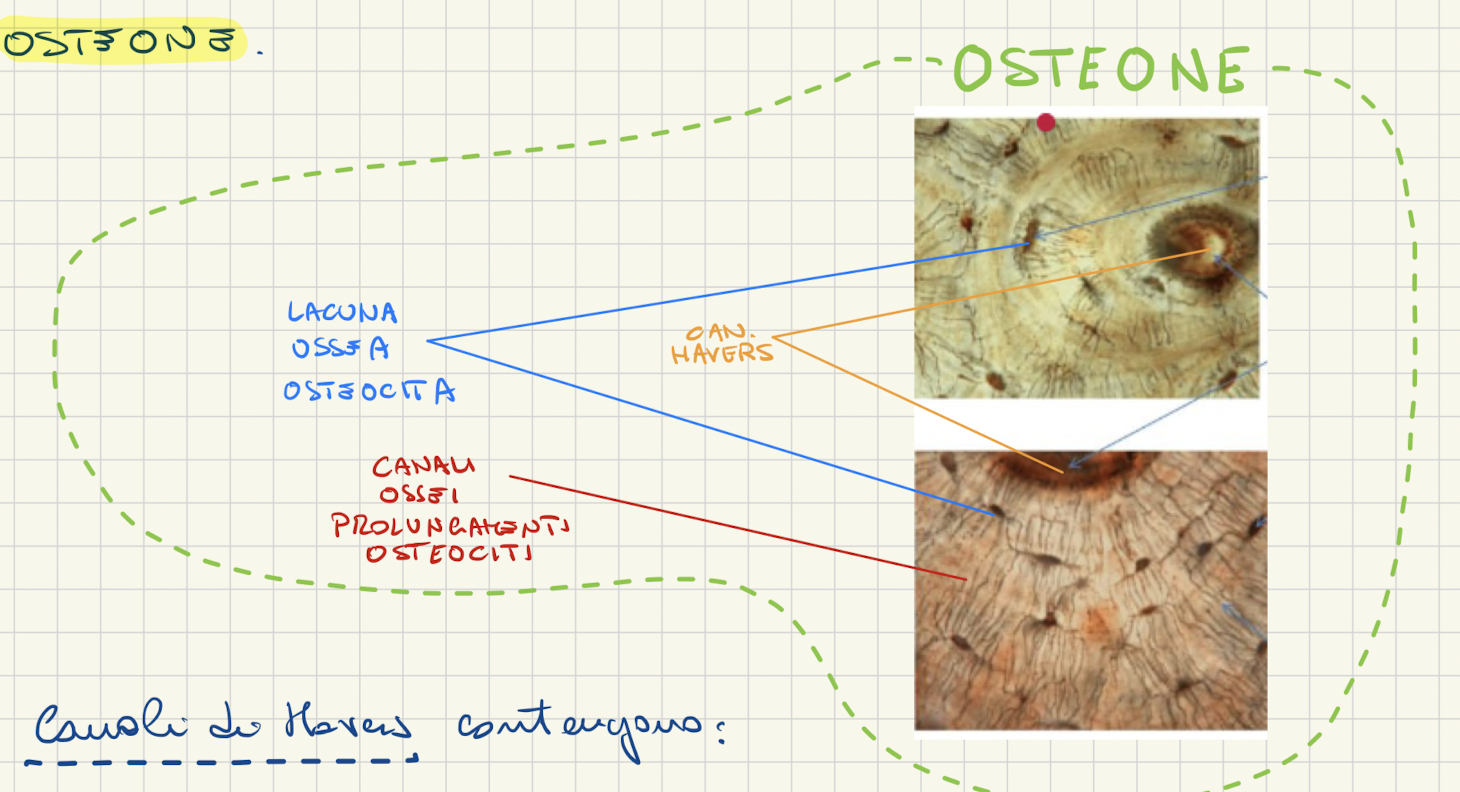 OSTEONE.
OSTEONE
LACUNA
OSSEA
OSTEOCITA
CAN.
HAVERS
CANALI
OSSEI
PROLUNGAMENTI
OSTEOCITI
Canali di Havers contengono: